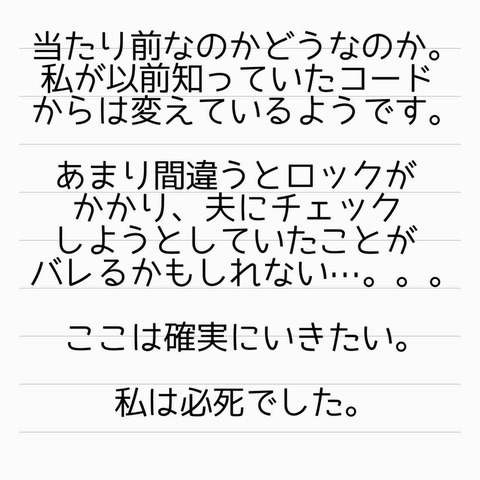 当たり前なのかどうなのか。
私が以前知っていたコード
からは変えているようです。
あまり間違うとロックが
かかり、夫にチェック
しようとしていたことが
バレるかもしれない…。。。
ここは確実にいきたい。
私は必死でした。